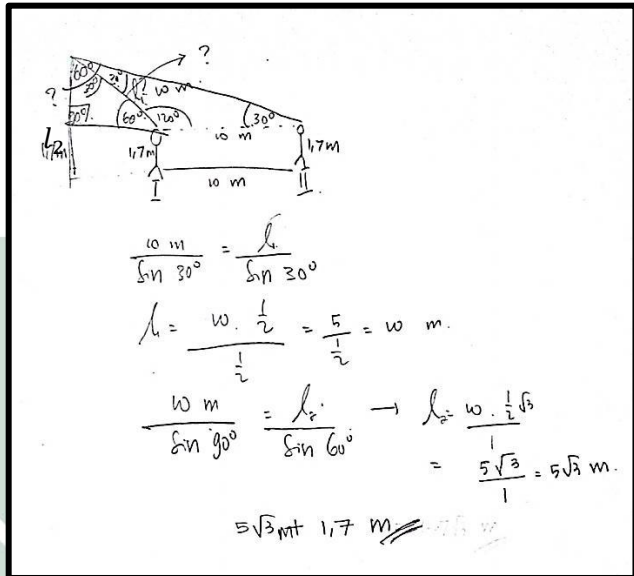 ?
60° 30° 30° l₁ 10 m
?
90° 60° 120° 10 m 30°
l₂
1,7m 1,7m
10 m
I II
10 m / sin 30° = l₁ / sin 30°
l₁ = 10 . 1/2 / 1/2 = 5 / 1/2 = 10 m.
10 m / sin 90° = l₂ / sin 60° → l₂ = 10 . 1/2 √3 / 1
= 5√3 / 1 = 5√3 m.
5√3 m + 1,7 m